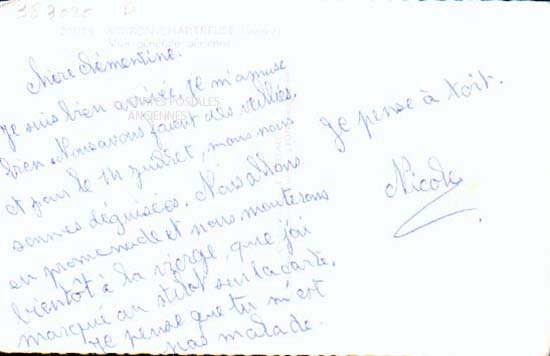 Chère Clémentine.
Je suis bien arrivée, Je m'amuse
bien. Nous avons faient des veillés.
et pour le 14 juillet, nous nous
sommes déguisées. Nous allons
en promenade et nous monterons
bientôt à la vierge, que j'ai
marqué au stilot sur la carte.
Je pense que tu n'est
pas malade.
Je pense à toit.
Nicole
CARTES POSTALES
ANCIENNES
VOIRON-CHARTREUSE
Vue générale aérienne